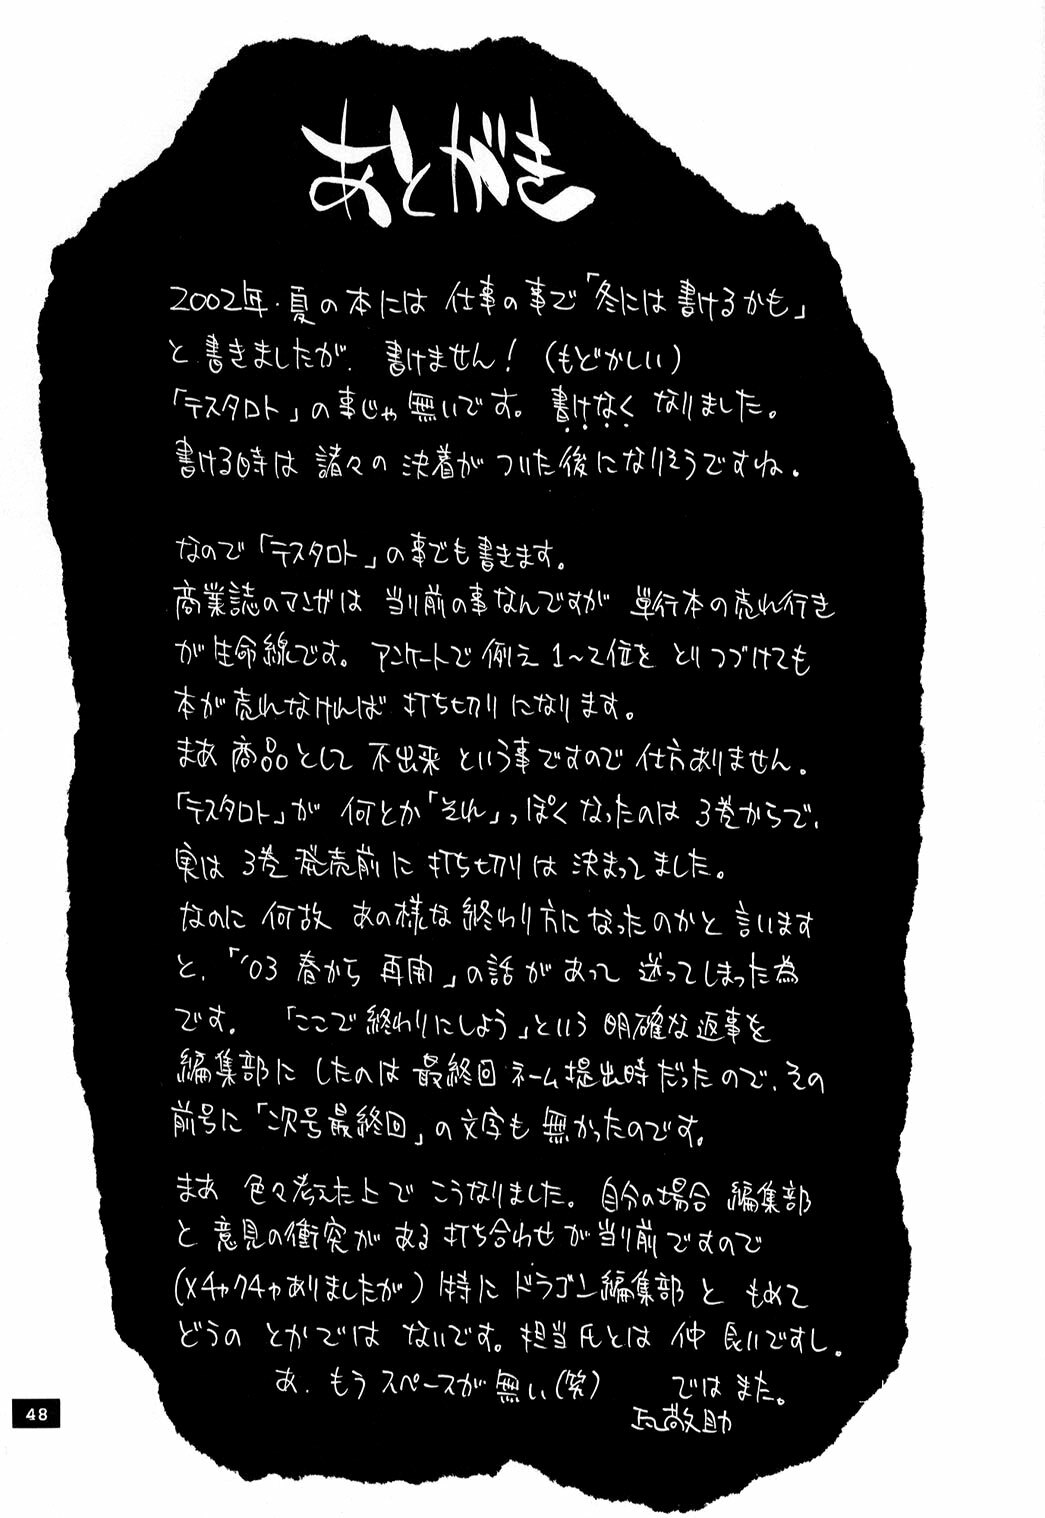 あとがき
2002年・夏の本には 仕事の事で「冬には書けるかも」
と書きましたが、書けません！（もどかしい）
「テスタロト」の事じゃ無いです。書けなくなりました。
書ける時は 諸々の決着がついた後になりそうですね。
なので「テスタロト」の事でも書きます。
商業誌のマンガは 当り前の事なんですが 単行本の売れ行き
が生命線です。アンケートで例え1〜2位をとりつづけても
本が売れなければ 打ち切りになります。
まあ商品として不出来という事ですので仕方ありません。
「テスタロト」が何とか「それ」っぽくなったのは 3巻からで、
実は 3巻発売前に打ち切りは決まってました。
なのに何故あの様な終わり方になったのかと言います
と、「'03 春から再開」の話があって迷ってしまった為
です。「ここで終わりにしよう」という明確な返事を
編集部にしたのは最終回ネーム提出時だったので、その
前号に「次号最終回」の文字も無かったのです。
まあ 色々考えた上でこうなりました。自分の場合 編集部
と意見の衝突がある打ち合わせが当り前ですので
（メチャクチャありましたが）特にドラゴン編集部ともめて
どうのとかではないです。担当氏とは仲良いですし。
あ、もうスペースが無い（笑） ではまた。
敬助
48